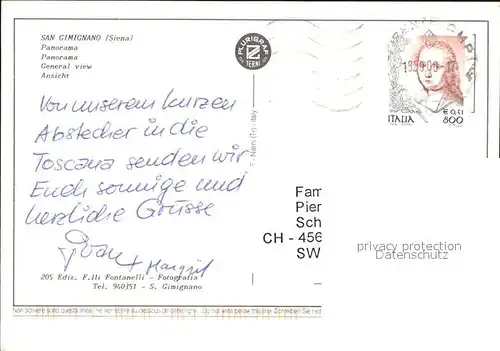 SAN GIMIGNANO (Siena)
Panorama
Panorama
General view
Ansicht
PLURIGRAF
TERNI
ITALIA
€ 0,41
800
Von unserem kurzen
Abstecher in die
Toscana senden wir
Euch sonnige und
herzliche Grüsse
+ Margrit
Fam
Pier
Sch
CH - 456
SW
privacy protection
Datenschutz
205 Ediz. F.lli Fontanelli - Fotografia
Tel. 940351 - S. Gimignano
Non scrivere sotto